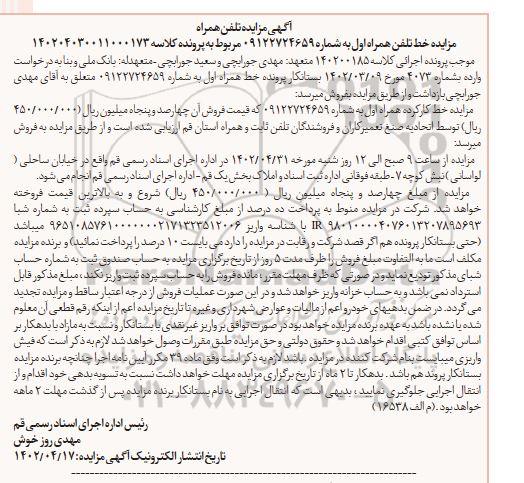 آگهی مزایده تلفن همراه
مزایده خط تلفن همراه اول به شماره ۰۹۱۲۲۷۲۴۶۵۹ مربوط به پرونده کلاسه ۱۴۰۲۰۴۰۳۰۰۱۱۰۰۰۱۷۳
موجب پرونده اجرائی کلاسه ۱۴۰۲۰۰۱۸۵ متعهد: مهدی جورابچی و سعید جورابچی-متعهدله: بانک ملی و بنا به درخواست
وارده بشماره ۴۰۷۳ مورخ ۱۴۰۲/۰۳/۰۹ بستانکار پرونده خط همراه اول به شماره ۰۹۱۲۲۷۲۴۶۵۹ متعلق به آقای مهدی
جورابچی بازداشت و از طریق مزایده بفروش میرسد:
مزایده خط کارکرده همراه اول به شماره ۰۹۱۲۲۷۲۴۶۵۹ که قیمت فروش آن چهارصد و پنجاه میلیون ریال (۴۵۰/۰۰۰/۰۰۰
ریال) توسط اتحادیه صنف تعمیرکاران و فروشندگان تلفن ثابت و همراه استان قم ارزیابی شده است و از طریق مزایده به فروش
میرسد:
مزایده از ساعت ۹ صبح الی ۱۲ روز شنبه مورخه ۱۴۰۲/۰۴/۳۱ در اداره اجرای اسناد رسمی قم واقع در خیابان ساحلی (
لواسانی) نبش کوچه ۷-طبقه فوقانی اداره ثبت اسناد و املاک بخش یک قم -اداره اجرای اسناد رسمی قم انجام می شود.
مزایده از مبلغ چهارصد و پنجاه میلیون ریال ( ۴۵۰/۰۰۰/۰۰۰ ریال) شروع و به بالاترین قیمت فروخته
خواهد شد. شرکت در مزایده منوط به پرداخت ده درصد از مبلغ کارشناسی به حساب سپرده ثبت به شماره شبا
IR ۹۸۰۱۰۰۰۰۴۰۷۶۰۱۳۲۰۷۸۹۵۶۹۳ با شناسه واریز ۹۶۵۱۰۸۵۷۶۱۰۰۰۰۰۰۰۲۱۷۱۳۲۳۵۱۲۰۰۶ میباشد
(حتی بستانکار پرونده هم اگر قصد شرکت و رقابت در مزایده را دارد می بایست ۱۰ درصد را پرداخت نمائید) و برنده مزایده
مکلف است ما به التفاوت مبلغ فروش را ظرف مدت ۵ روز از تاریخ برگزاری مزایده به حساب صندوق ثبت به شماره حساب
شبای مذکور تودیع نماید و در صورتی که ظرف مهلت مقرر، مانده فروش را به حساب سپرده ثبت واریز نکند، مبلغ مذکور قابل
استرداد نمی باشد و به حساب خزانه واریز خواهد شد و در این صورت عملیات فروش از درجه اعتبار ساقط و مزایده تجدید
می گردد. در ضمن بدهیهای خودرو اعم از مالیات و عوارض شهرداری و غیره تا تاریخ مزایده اعم از اینکه رقم قطعی آن معلوم
شده یا نشده باشد به عهده برنده مزایده خواهد بود در صورت توافق بر واریز غیر نقدی با بستانکار و نسبت به مازاد با بدهکار بر
اساس توافق کتبی اقدام خواهد شد و حقوق دولتی و حق مزایده طبق مقررات وصول خواهد شد لازم به ذکر است که فیش
واریزی میبایست بنام شرکت کننده در مزایده باشد لازم به ذکر است وفق ماده ۳۹ مکرر آیین نامه اجرا چنانچه برنده مزایده
بستانکار پرونده هم باشد. بدهکار تا ۲ ماه از تاریخ برگزاری مزایده مهلت خواهد داشت نسبت به تسویه بدهی خود اقدام و از
انتقال اجرایی جلوگیری نمایید، بدیهی است که انتقال اجرایی به نام بستانکار برنده مزایده پس از گذشت مهلت ۲ ماهه
خواهد بود. (م الف ۱۶۵۳۸)
رئیس اداره اجرای اسناد رسمی قم
مهدی روز خوش
تاریخ انتشار الکترونیک آگهی مزایده: ۱۴۰۲/۰۴/۱۷